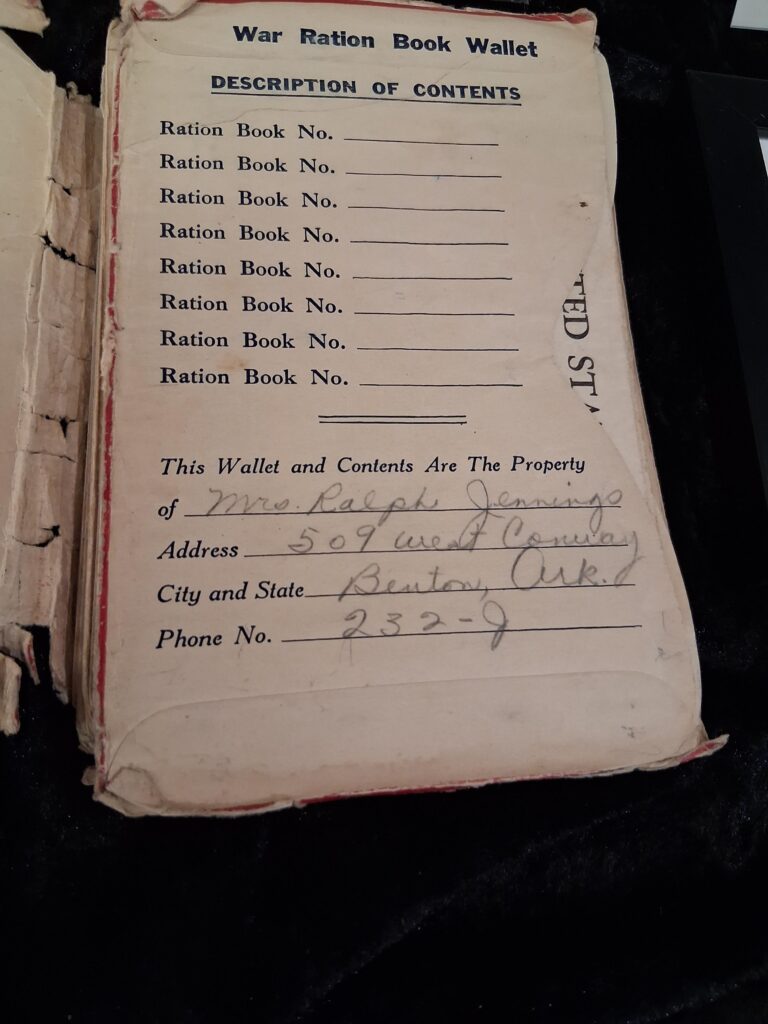 War Ration Book Wallet
DESCRIPTION OF CONTENTS
Ration Book No.
Ration Book No.
Ration Book No.
Ration Book No.
Ration Book No.
Ration Book No.
Ration Book No.
Ration Book No.
TED STA
This Wallet and Contents Are The Property
of Mrs. Ralph Jennings
Address 509 West Conway
City and State Benton, Ark.
Phone No. 232-J